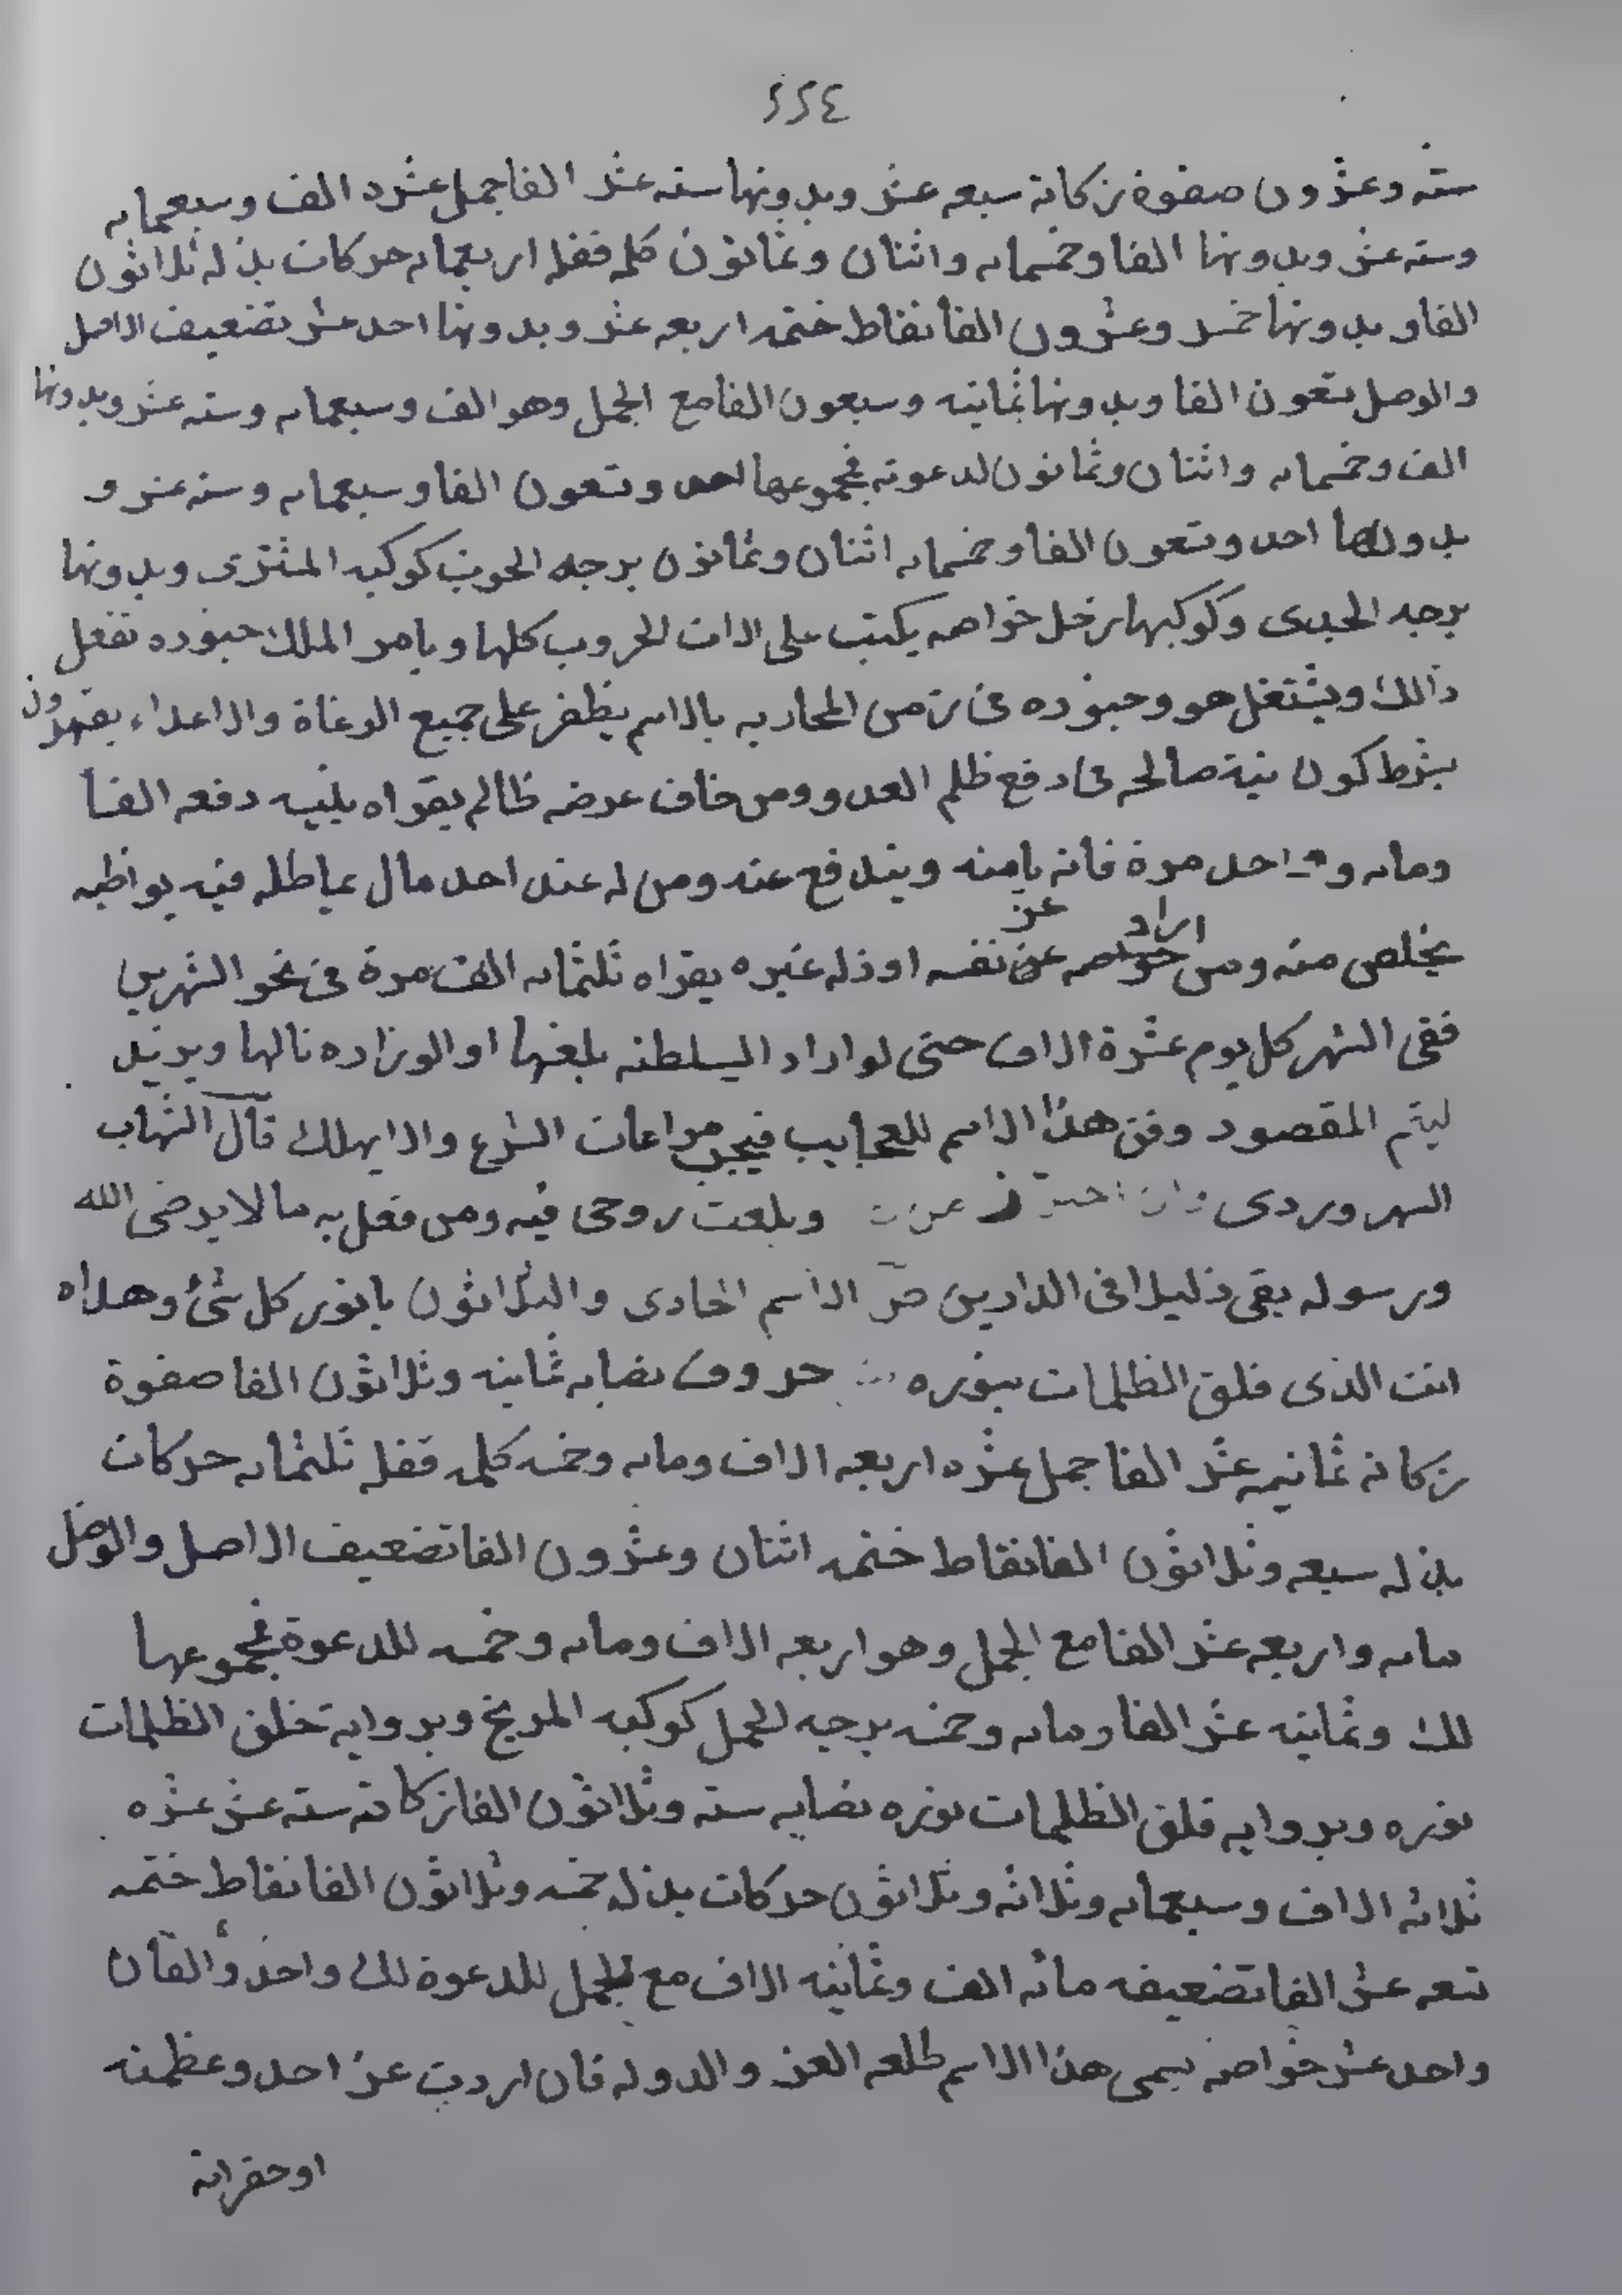 ٢٢٤
سته وعشرون صفوة زكاته سبعه عشر وبدونها سته عشر الفا جمل عشره الف وسبعمايه
وسته عشر وبدونها الفا وخمسمايه واثنان وثمانون كلمه قفله اربعمايه حركات بذله ثلاثون
الفا وبدونها خمسه وعشرون الفا نقاط ختمه اربعه عشر وبدونها احد عشر تضعيف الاصل
والوصل تسعون الفا وبدونها ثمانيه وسبعون الفا مع الجمل وهو الف وسبعمايه وسته عشر وبدونها
الف وخمسمايه واثنان وثمانون لدعوته فمجموعها احد وتسعون الفا وسبعمايه وسته عشر و
بدونها احد وتسعون الفا وخمسمايه اثنان وثمانون برجه الحوت كوكبه المشترى وبدونها
برجه الجدى وكوكبها زحل خواصه يكتب على الات الحروب كلها ويامر الملك جنوده تفعل
ذالك ويشتغل هو وجنوده فى زمن المحاربه بالاسم يظفر على جميع البغاة والاعداء يقهرون
بشرط كون نية صالحه فى دفع ظلم العدو ومن خاف عرضه ظالم يقراه بنيه دفعه الفا
ومايه واحد مرة فانه يامنه ويندفع عنه ومن له عند احد مال يماطله فيه يواظبه
يخلص منه ومن اراد عز نفسه او ذله غيره يقراه ثلثمايه الف مرة فى نحو الشهرين
ففى الشهر كل يوم عشرة الاف حتى لو اراد السلطنه بلغها او الوزاره نالها ويريد
ليتم المقصود وفى هذا الاسم للعجايب فيجب مراعات الشرع والا يهلك قال الشهاب
السهروردى وبلغت روحى فيه ومن فعل به ما لا يرضى الله
ورسوله بقى ذليلا فى الدارين الاسم الحادى والثلاثون يا نور كل شئ وهداه
انت الذى فلق الظلمات بنوره حروف نصابه ثمانيه وثلاثون الفا صفوة
زكاته ثمانيه عشر الفا جمل عشره اربعه الاف ومايه وخمسه كلمه قفله ثلثمايه حركات
بذله سبعه وثلاثون الفا نقاط ختمه اثنان وعشرون الفا تضعيف الاصل والوصل
مايه واربعه عشر الفا مع الجمل وهو اربعه الاف ومايه وخمسه للدعوة فمجموعها
لك وثمانيه عشر الفا ومايه وخمسه برجه الحمل كوكبه المريخ وبرواية خلق الظلمات
نوره وبروايه فلق الظلمات نوره نصابه سته وثلاثون الفا زكاته سته عشر عشره
ثلاثه الاف وسبعمايه وثلاثه وثلاثون حركات بذله خمسه وثلاثون الفا نقاط ختمه
تسعه عشر الفا تضعيفه مائه الف وثمانيه الاف مع الجمل للدعوة لك واحد والفان
واحد عشر خواصه يسمى هذا الاسم طلعه العز والدوله فان اردت عز احد وعظمته
او حقرانه